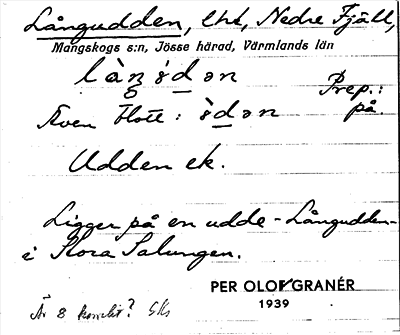 Långudden, lht, Nedre Fjäll,
Mangskogs s:n, Jösse härad, Värmlands län
Prep.:
Även blott : på.
Udden ek.
Ligger på en udde - Långudden -
i Stora Salungen.
PER OLOF GRANÉR
1939
Är 8 korrekt? GK